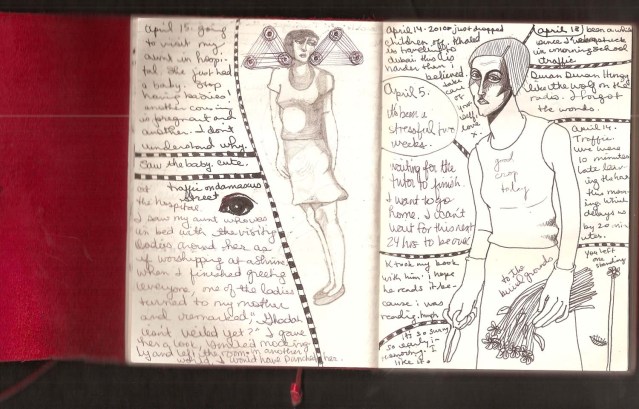 April 15. going
to visit my
aunt in hospi-
tal. She just had
a baby. Stop
having babies!
another cousin
is pregnant and
another. I don't
understand why.
Saw the baby. cute.
traffic on damascus
street
at
the hospital
I saw my aunt who was
in bed with the visiting
ladies around her as
if worshipping at a shrine
when I finished greeting
everyone, one of the ladies
turned to my mother
and remarked, "Ghada
isn't veiled yet?" I gave
her a look, smiled
and left the room. in another
world, I would have punched her.
April 14. 2010 just dropped
children of Khaled
is traveling to
dubai. this is
harder than I
believed.
take
care
of
me
self.
love
x.
April 5.
it's been a
stressful two
weeks.
waiting for the
tutor to finish.
I want to go
home. I can't
wait for this next
24 hrs to be over
K took my book
with him. I hope
he reads it be-
cause i was
reading
it's so sunny
so early in
morning. I
like it.
April 18
been a while
since I was stuck
in morning school
traffic
Duran Duran Hungry
like the wolf on the
radio. I forgot
the words.
April 14.
Traffic.
we were
10 minutes
late leav-
ing the house
this morn-
ing. which
delays us
by 20 min
utes.
good
crop
today
to the
burial grounds
You left
one
standing